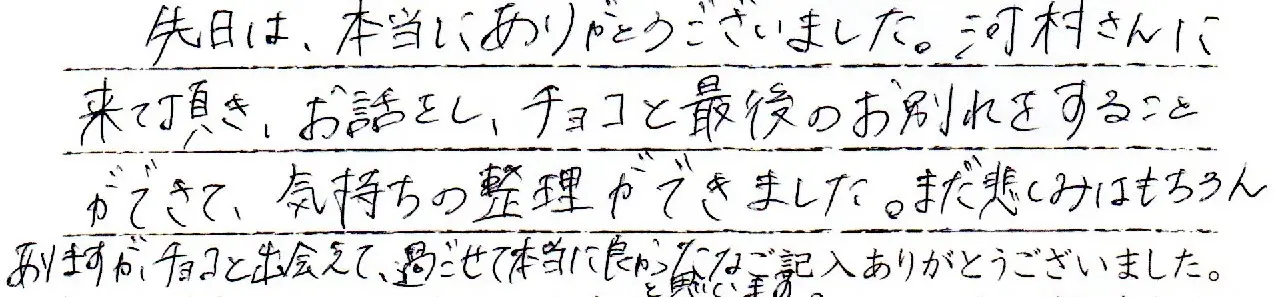 先日は、本当にありがとうございました。河村さんに
来て頂き、お話をし、チョコと最後のお別れをすること
ができて、気持ちの整理ができました。まだ悲しみはもちろん
ありますが、チョコと出会えて、過ごせて本当に良かったなご記入ありがとうございました。
と思います。